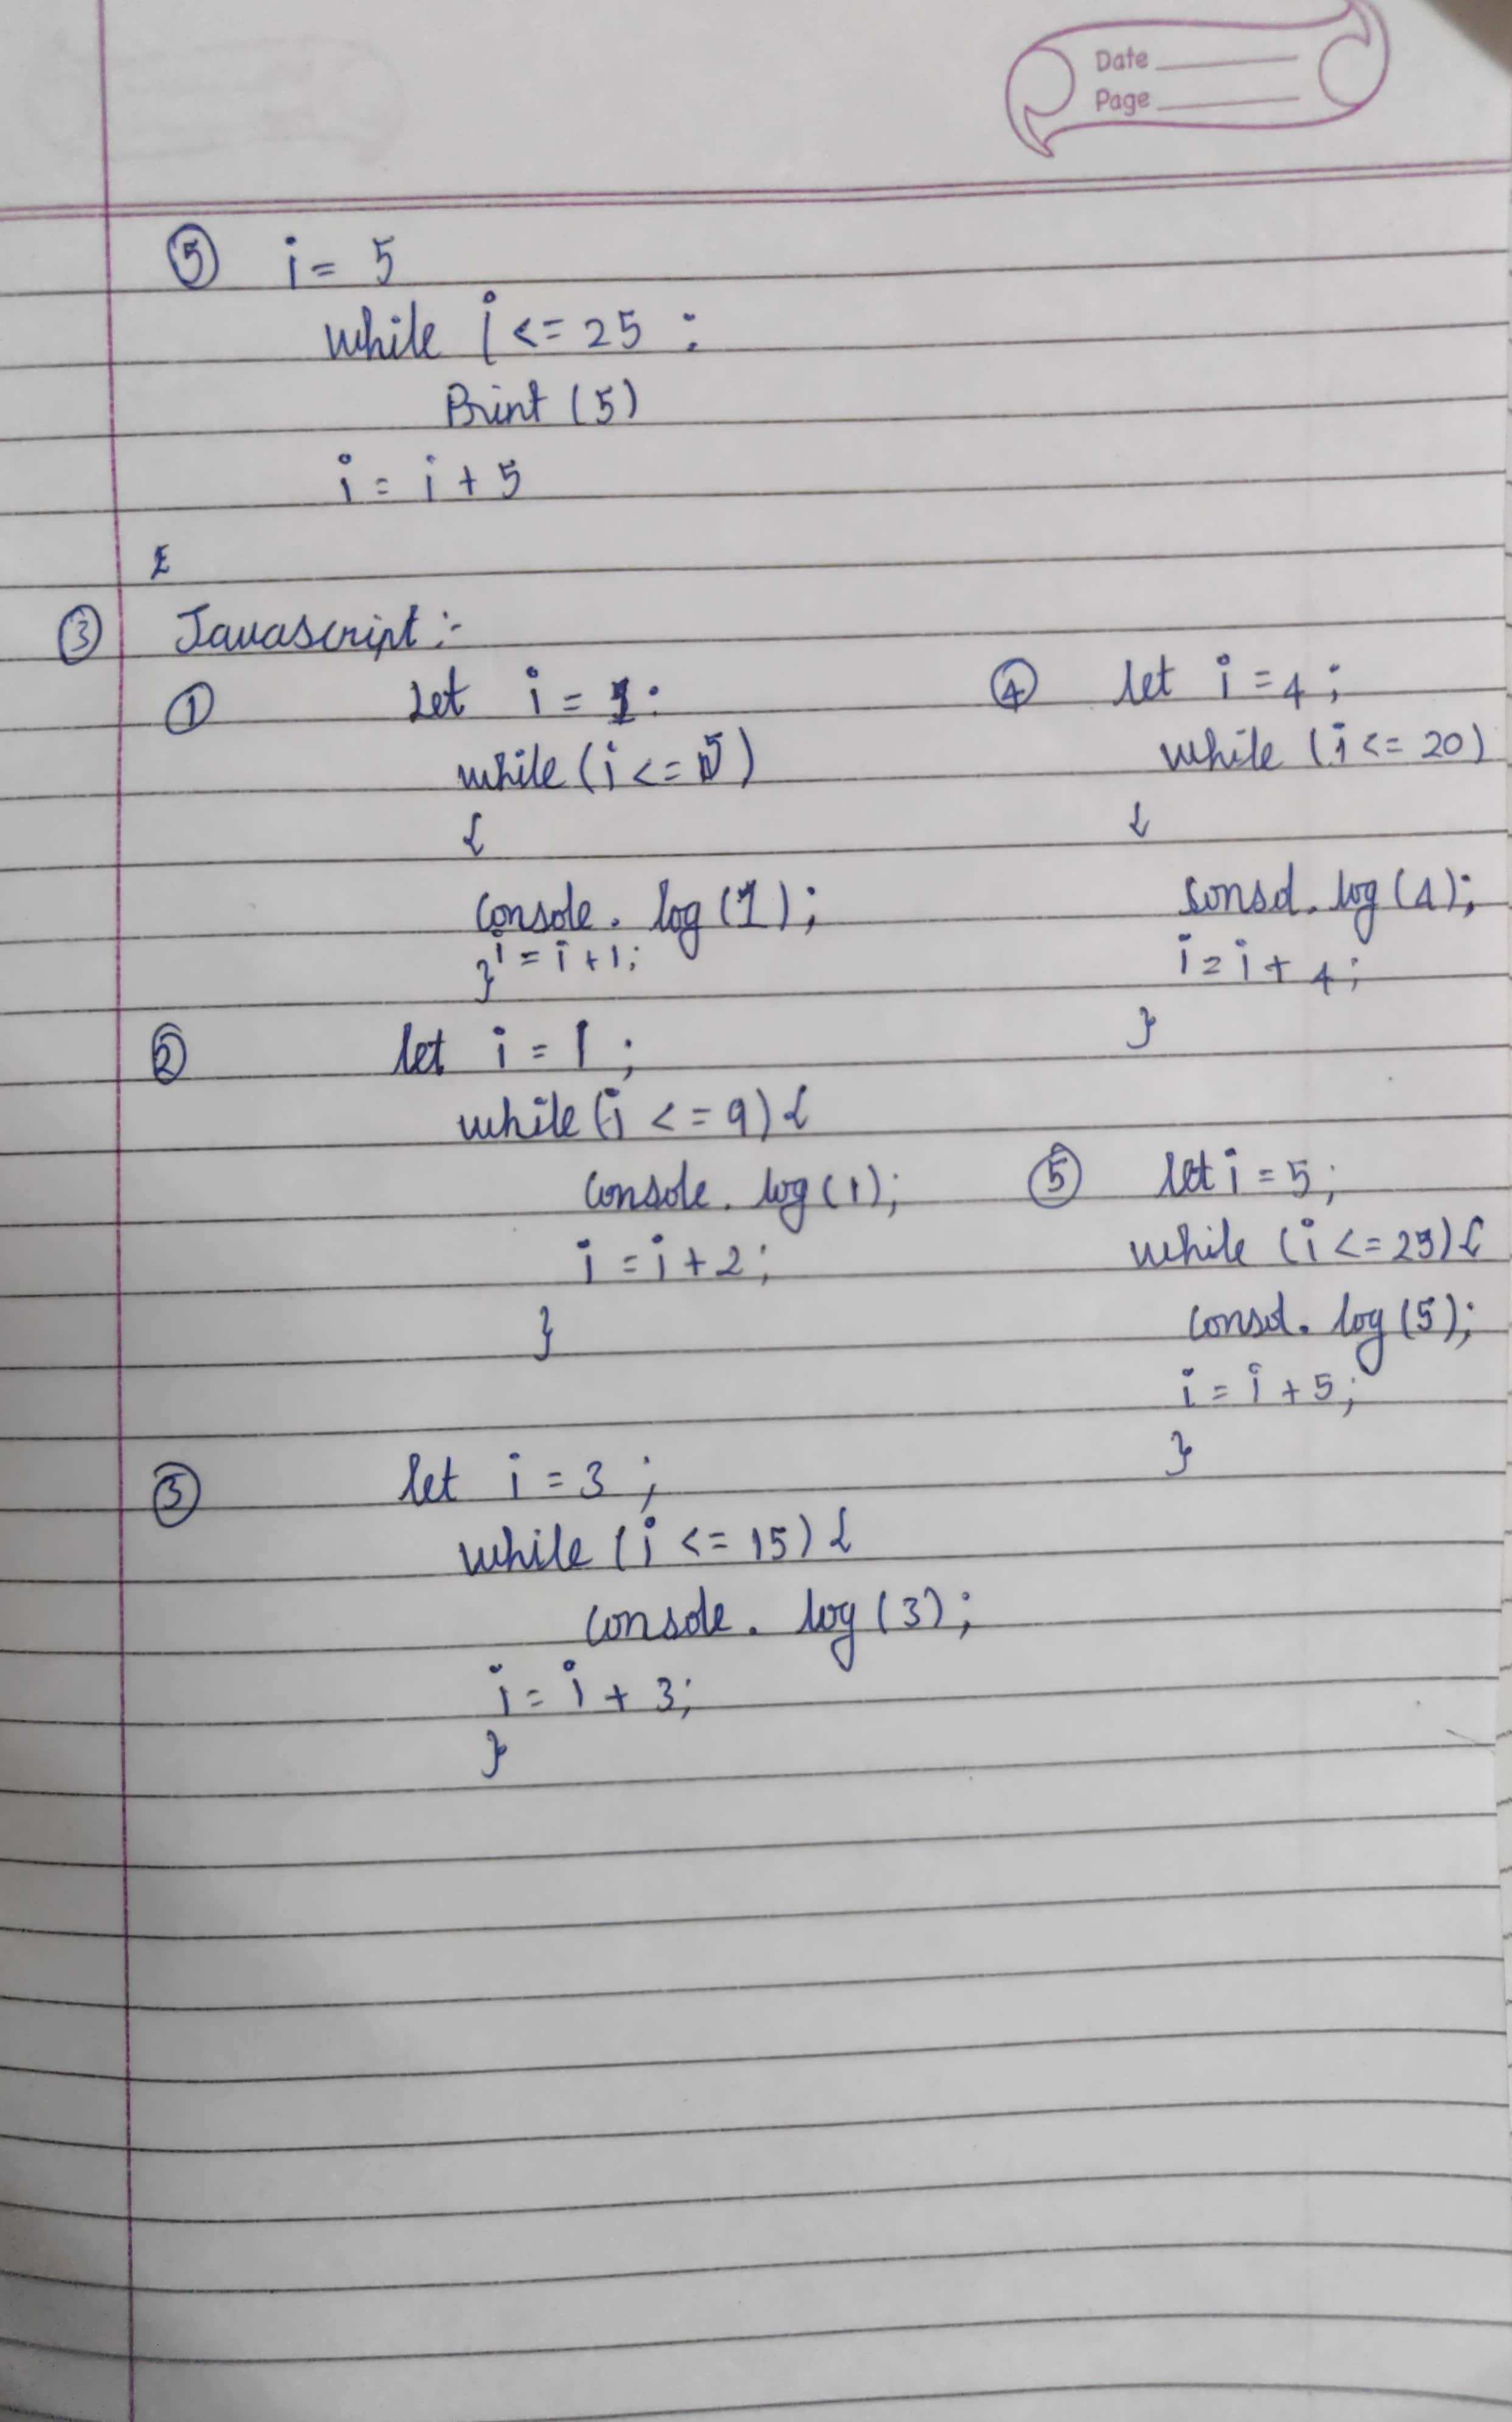 Date
Page
⑤ i = 5
while i <= 25 :
Print (5)
i = i + 5
③ Javascript :-
① Let i = 1:
while (i <= 5)
{
console. log (1);
i = i + 1;
}
② let i = 1 ;
while (i <= 9) {
console. log (1);
i = i + 2;
}
③ let i = 3 ;
while (i <= 15) {
console. log (3);
i = i + 3;
}
④ let i = 4 ;
while (i <= 20)
{
consol. log (4);
i = i + 4;
}
⑤ let i = 5;
while (i <= 25) {
consol. log (5);
i = i + 5;
}